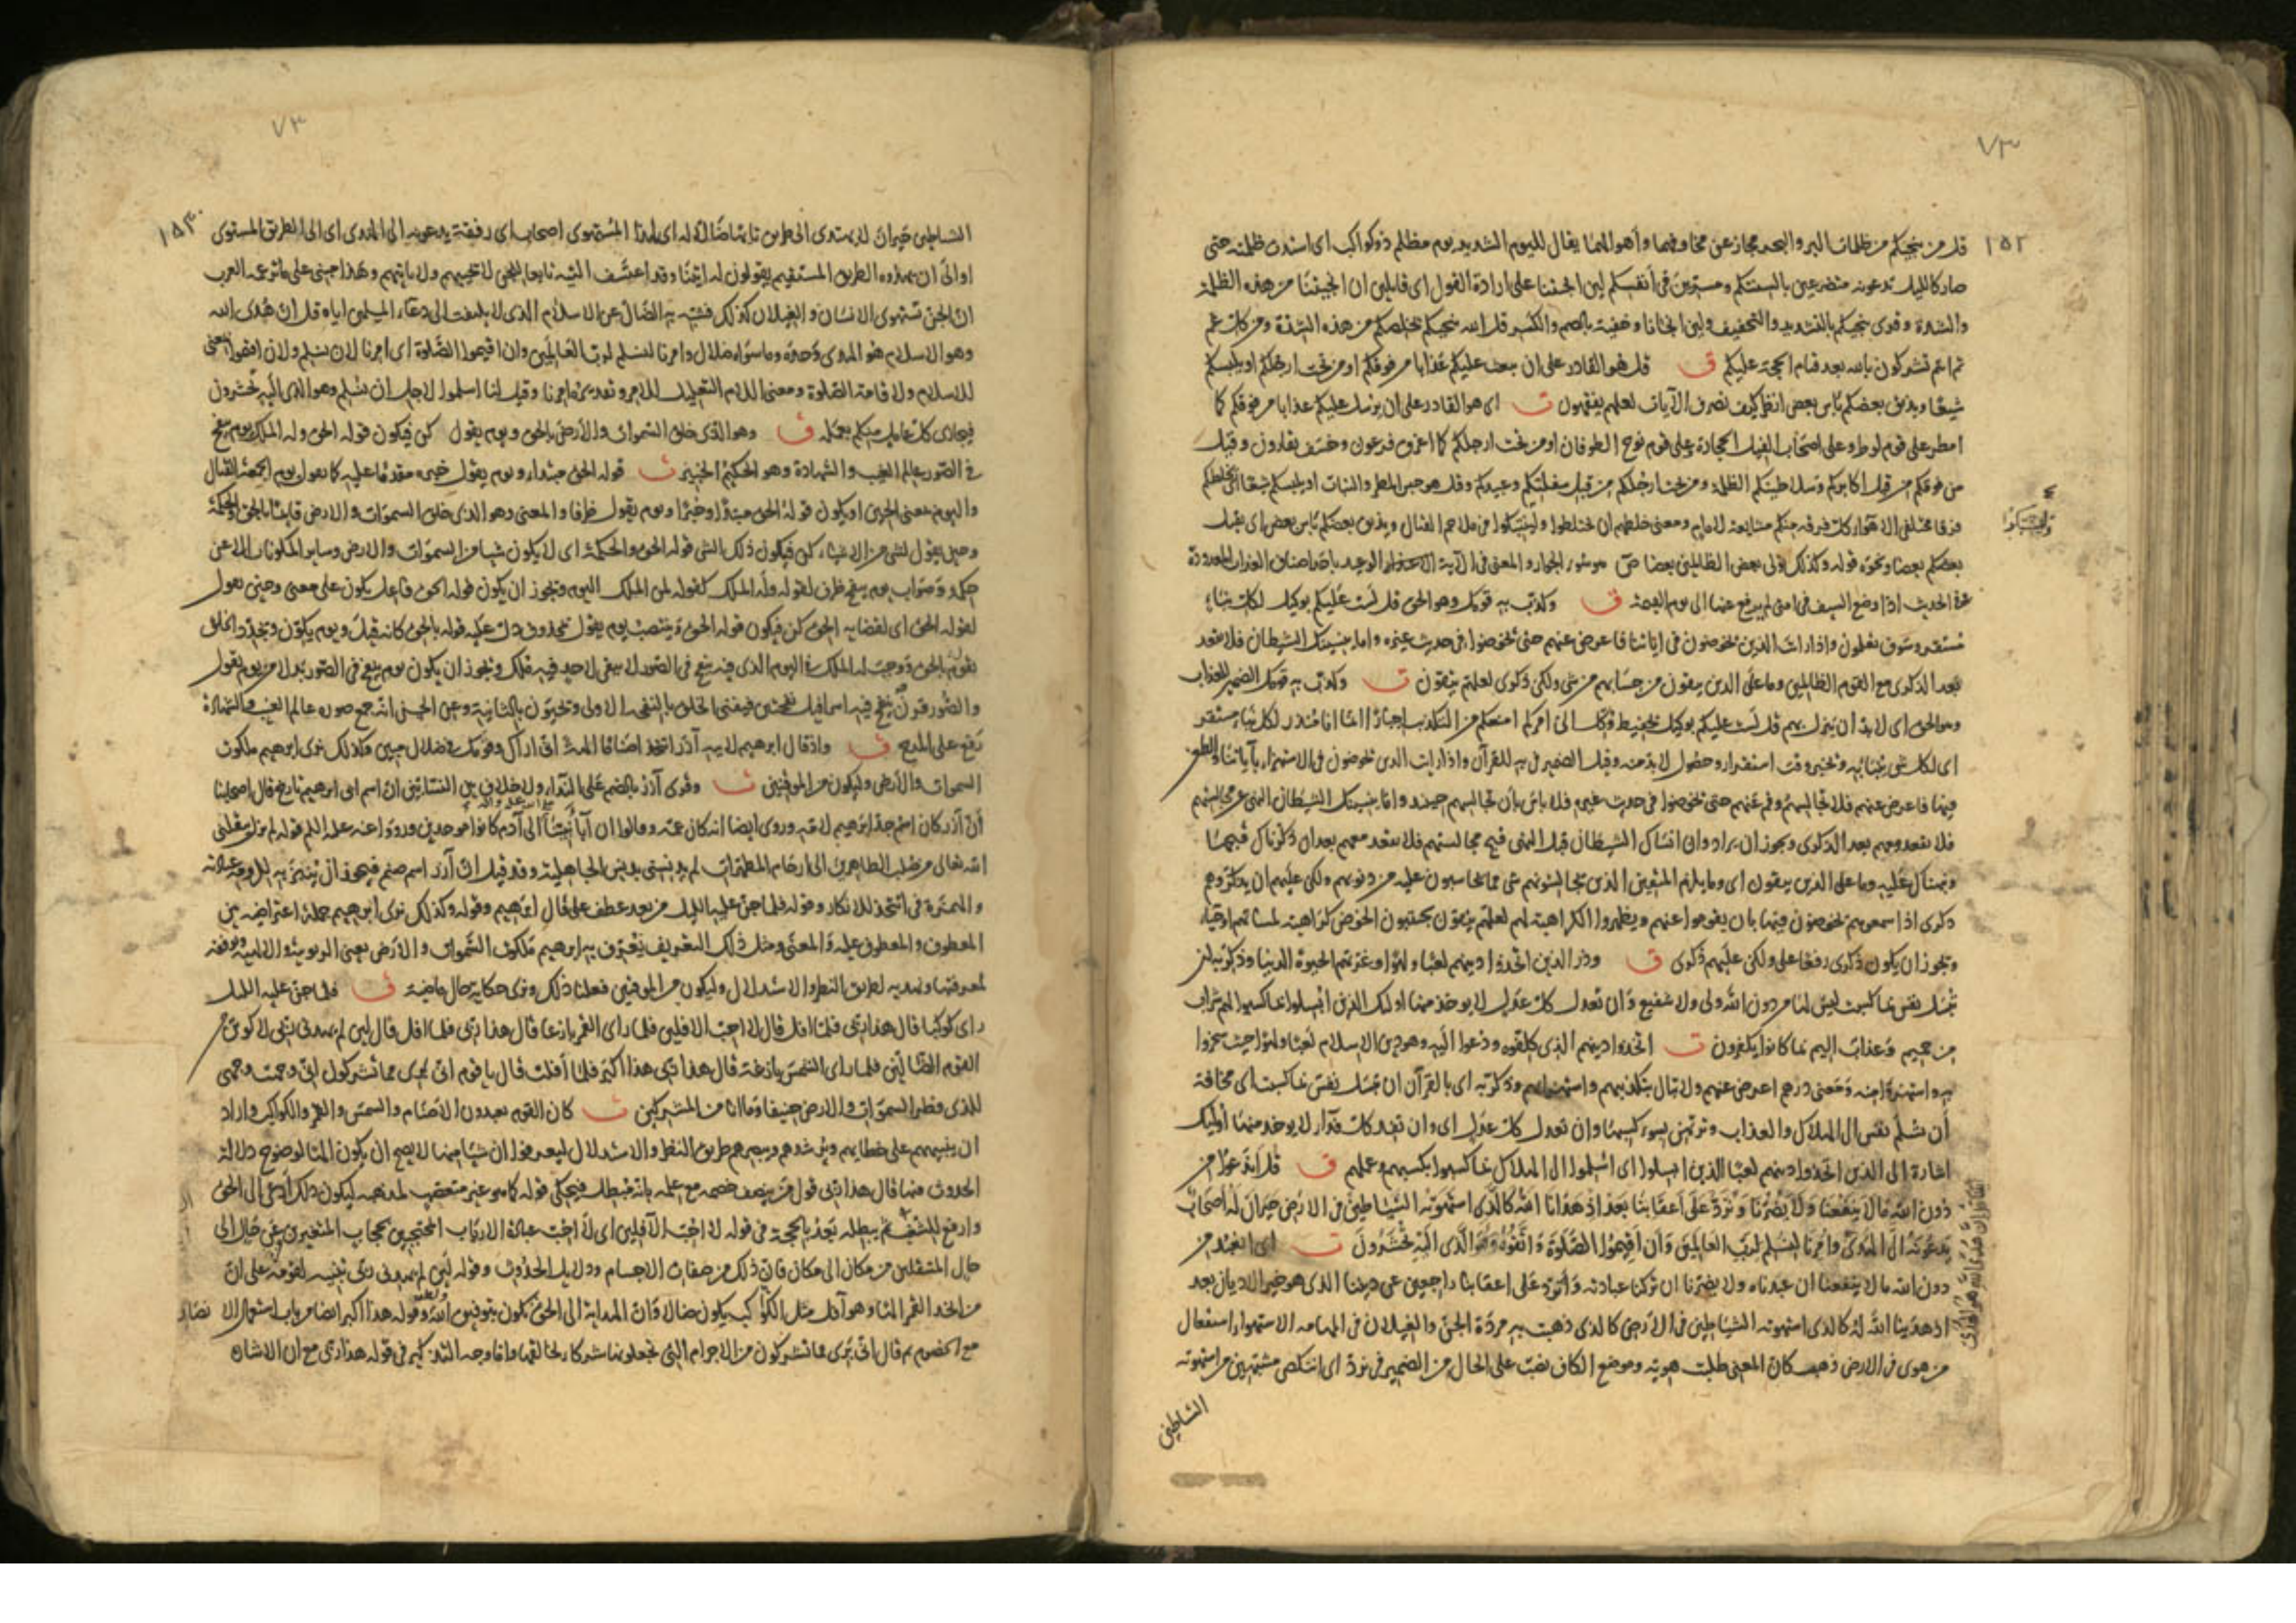 ٧٣
١٥٢
قل من ينجيكم من ظلمات البر والبحر مجاز عن مخاوفهما وأهوالهما يقال لليوم الشديد يوم مظلم ذو كواكب اى اشتدت ظلمته حتى
صار كالليل تدعونه متضرعين بالسنتكم ومسترين فى أنفسكم لين انجيتنا على ارادة القول اى قايلين ان انجيتنا من هذه الظلمة
والشدة وقرى ينجيكم بالتشديد والتخفيف ولين انجانا وخفية بالضم والكسر قل الله ينجيكم يخلصكم من هذه الشدة ومن كل غم
ثم انتم تشركون بالله بعد قيام الحجة عليكم ق قل هو القادر على ان يبعث عليكم عذابا من فوقكم او من تحت ارجلكم او يلبسكم
شيعا ويذيق بعضكم باس بعض انظر كيف نصرف الآيات لعلهم يفقهون ت اى هو القادر على ان يرسل عليكم عذابا من فوقكم كما
امطر على قوم لوط وعلى اصحاب الفيل الحجارة وعلى قوم نوح الطوفان او من تحت ارجلكم كما اغرق فرعون وخسف بقارون وقيل
من فوقكم من قبل اكابركم وسلاطينكم الظلمة ومن تحت ارجلكم من قبل سفلتكم وعبيدكم وقيل هو حبس المطر والنبات او يلبسكم شيعا اى يخلطكم
فرقا مختلفى الاهواء كل فرقة منكم مشايعة لامام ومعنى خلطهم ان يختلطوا ويشتبكوا فى ملاحم القتال ويذيق بعضكم باس بعض اى يقتل
بعضكم بعضا ونحوه قوله وكذلك نولى بعض الظالمين بعضا
فى الحديث اذا وضع السيف فى امتى لم يرفع عنها الى يوم القيمة ق وكذب به قومك وهو الحق قل لست عليكم بوكيل لكل نباء
مستقر وسوف تعلمون واذا رايت الذين يخوضون فى اياتنا فاعرض عنهم حتى يخوضوا فى حديث غيره واما ينسينك الشيطان فلا تقعد
بعد الذكرى مع القوم الظالمين وما على الذين يتقون من حسابهم من شى ولكن ذكرى لعلهم يتقون ت وكذب به قومك الضمير للعذاب
وهو الحق اى لابد ان ينزل بهم قل لست عليكم بوكيل بحفيظ وكل الى امركم امنعكم من التكذيب اجبارا انما انا منذر لكل نباء مستقر
اى لكل شى ينباء به وقت استقرار وحصول لابد منه وقيل الضمير فى به للقرآن واذا رايت الذين يخوضون فى الاستهزاء بآياتنا والطعن
فيها فاعرض عنهم فلا تجالسهم وقم عنهم حتى يخوضوا فى حديث غيره فلا باس بأن تجالسهم حينئذ واما ينسينك الشيطان النهى عن مجالستهم
فلا تقعد معهم بعد الذكرى ويجوز ان يراد وان انساك الشيطان قبل النهى قبح مجالستهم فلا تقعد معهم بعد ان ذكرناك قبحها
ونبهناك عليه وما على الذين يتقون اى وما يلزم المتقين الذين يجالسونهم شى مما يحاسبون عليه من ذنوبهم ولكن عليهم ان يذكروهم
ذكرى اذا سمعوهم يخوضون فيها بان يقوموا عنهم ويظهروا الكراهية لهم لعلهم يتقون يجتنبون الخوض كراهية لمساءتهم او حياء
ويجوز ان يكون ذكرى رفعا على ولكن عليهم ذكرى ق وذر الذين اتخذوا دينهم لعبا ولهوا وغرتهم الحيوة الدنيا وذكر به ان
تبسل نفس بما كسبت ليس لها من دون الله ولى ولا شفيع وان تعدل كل عدل لا يوخذ منها اولئك الذين ابسلوا بما كسبوا لهم شراب
من حميم وعذاب اليم بما كانوا يكفرون ت اتخذوا دينهم الذى كلفوه ودعوا اليه وهو دين الاسلام لعبا ولهوا حيث سخروا
به واستهزؤا منه ومعنى ذرهم اعرض عنهم ولا تبال بتكذيبهم واستهزايهم وذكر به اى بالقرآن ان تبسل نفس بما كسبت اى مخافة
أن تسلم نفس الى الهلاك والعذاب وترتهن بسوء كسبها وان تعدل كل عدل اى وان تفد كل فداء لا يوخذ منها أولئك
اشارة الى الذين اتخذوا دينهم لعبا الذين ابسلوا اى اسلموا الى الهلاك بما كسبوا بكسبهم وعملهم ق قل اندعوا من
دون الله ما لا ينفعنا ولا يضرنا ونرد على اعقابنا بعد اذ هدانا الله كالذى استهوته الشياطين فى الارض حيران له اصحاب
يدعونه الى الهدى وامرنا لنسلم لرب العالمين وان اقيموا الصلوة واتقوه وهو الذى اليه تحشرون ت اى انعبد من
دون الله ما لا ينفعنا ان عبدناه ولا يضرنا ان تركنا عبادته ونرد على اعقابنا راجعين عن ديننا الذى هو خير الاديان بعد
اذ هدينا الله له كالذى استهوته الشياطين فى الأرض كالذى ذهبت به مردة الجن والغيلان فى المهامه الاستهواء استفعال
من هوى فى الارض ذهب كان المعنى طلبت هويه وموضع الكاف نصب على الحال من الضمير فى نرد اى اننكص مشبهين من استهوته
الشياطين
ويشتبكوا
قل ان هدى الله هو الهدى
٧٣
١٥٣
الشياطين حيران لا يهتدى الى طريق تايها ضالا له اى لهذا المستهوى اصحاب اى رفقة يدعونه الى الهدى اى الى الطريق المستوى
او الى ان يهدوه الطريق المستقيم يقولون له ايتنا وقد اعتسف التيه تابعا للجن لا يجيبهم ولا ياتيهم وهذا مبنى على ما تزعمه العرب
ان الجن تستهوى الانسان والغيلان كذلك فشبه به الضال عن الاسلام الذى لا يلتفت الى دعاء المسلمين اياه قل ان هدى الله
وهو الاسلام هو الهدى وحده وما سواه ضلال وامرنا لنسلم لرب العالمين وان اقيموا الصلوة اى امرنا لان نسلم ولان اقيموا يعنى
للاسلام ولاقامة الصلوة ومعنى اللام التعليل للامر وقيل لنا اسلموا لاجل ان نسلم وهو الذى اليه تحشرون
فيجازى كل عامل منكم بعمله ق وهو الذى خلق السموات والأرض بالحق ويوم يقول كن فيكون قوله الحق وله الملك يوم ينفخ
فى الصور عالم الغيب والشهادة وهو الحكيم الخبير ت قوله الحق مبتداء ويوم يقول خبره مقدما عليه كما تقول يوم الجمعة القتال
واليوم بمعنى الحين او يكون قوله الحق مبتدا وخبرا ويوم يقول ظرفا والمعنى وهو الذى خلق السموات والارض قايما بالحق والحكمة
وحين يقول لشى من الاشياء كن فيكون ذلك الشى قوله الحق والحكمة اى لا يكون شيا من السموات والارض وساير المكونات الا عن
حكمة وصواب يوم ينفخ ظرف لقوله وله الملك كقوله لمن الملك اليوم ويجوز ان يكون قوله الحق فاعل يكون على معنى وحين يقول
لقوله الحق اى لقضايه الحق كن فيكون قوله الحق وينتصب يوم يقول بمحذوف دل عليه قوله بالحق كانه قيل ويوم يكون ويجدد الخلق
يقوم بالحق ووجب له الملك فى اليوم الذى فيه ينفخ فى الصور لا يبقى لاحد فيه ملك ويجوز ان يكون يوم ينفخ فى الصور بدلا من يوم يقول
والصور قرن ينفخ فيه اسرافيل نفختين فيفنى الخلق بالنفخة الاولى ويحيون بالثانية وعن الحسن انه جمع صورة عالم الغيب والشهادة
رفع على المدح ق واذ قال ابرهيم لابيه آذر اتتخذ اصناما الهة انى اراك وقومك فى ضلال مبين وكذلك نرى ابرهيم ملكوت
السموات والأرض وليكون من الموقنين ت وقرى آذر بالضم على النداء ولا خلاف بين النسابين ان اسم ابى ابرهيم تارخ قال اصحابنا
ان آذر كان اسم جد ابرهيم لامه وروى ايضا انه كان عمه وقالوا ان آباء نبينا الى آدم كانوا موحدين ورووا عنه عليه السلم قوله لم يزل ينقلنى
الله تعالى من صلب الطاهرين الى ارحام المطهرات لم يدنسنى بدنس الجاهلية وقد قيل ان آذر اسم صنم فيجوز ان ينبز به للزومه عبادته
والهمزة فى اتتخذ للانكار وقوله فلما جن عليه الليل من بعد عطف على قال ابرهيم وقوله وكذلك نرى ابرهيم جملة اعتراضية بين
المعطوف والمعطوف عليه والمعنى ومثل ذلك التعريف نعرف ابرهيم ملكوت السموات والارض يعنى الربوبية والالهية ونوفقه
لمعرفتها ونهديه لطريق النظر والاستدلال وليكون من الموقنين فعلنا ذلك ونرى حكاية حال ماضية ق فلما جن عليه الليل
راى كوكبا قال هذا ربى فلما افل قال لا احب الآفلين فلما راى القمر بازغا قال هذا ربى فلما افل قال لين لم يهدنى ربى لاكونن من
القوم الضالين فلما راى الشمس بازغة قال هذا ربى هذا اكبر فلما أفلت قال يا قوم انى برى مما تشركون انى وجهت وجهى
للذى فطر السموات والارض حنيفا وما انا من المشركين ت كان القوم يعبدون الأصنام والشمس والقمر والكواكب واراد
ان ينبههم على خطايهم ويرشدهم ويبصرهم طريق النظر والاستدلال ليعرفوا ان شيا منها لا يصح ان يكون الها لوضوح دلالة
الحدوث فيها قال هذا ربى قول من ينصف خصمه مع علمه بانه مبطل فيحكى قوله كما هو غير متعصب لمذهبه ليكون ذلك أدعى الى الحق
وادفع للشغب ثم يبطله بعد بالحجة فى قوله لا احب الآفلين اى لا احب عبادة الارباب المحتجبين بحجاب المتغيرين عن حال الى
حال المنتقلين من مكان الى مكان فان ذلك من صفات الاجسام ودلايل الحدوث وقوله لين لم يهدنى ربى تنبيه لقومه على ان
من اتخذ القمر الها وهو آفل مثل الكواكب يكون ضالا وان الهداية الى الحق يكون بتوفيق الله وقوله هذا اكبر ايضا من باب استعمال الانصاف
مع الخصوم ثم قال انى برى مما تشركون من الاجرام التى تجعلونها شركاء لخالقها واما وجه التذكير فى قوله هذا ربى مع ان الاشارة